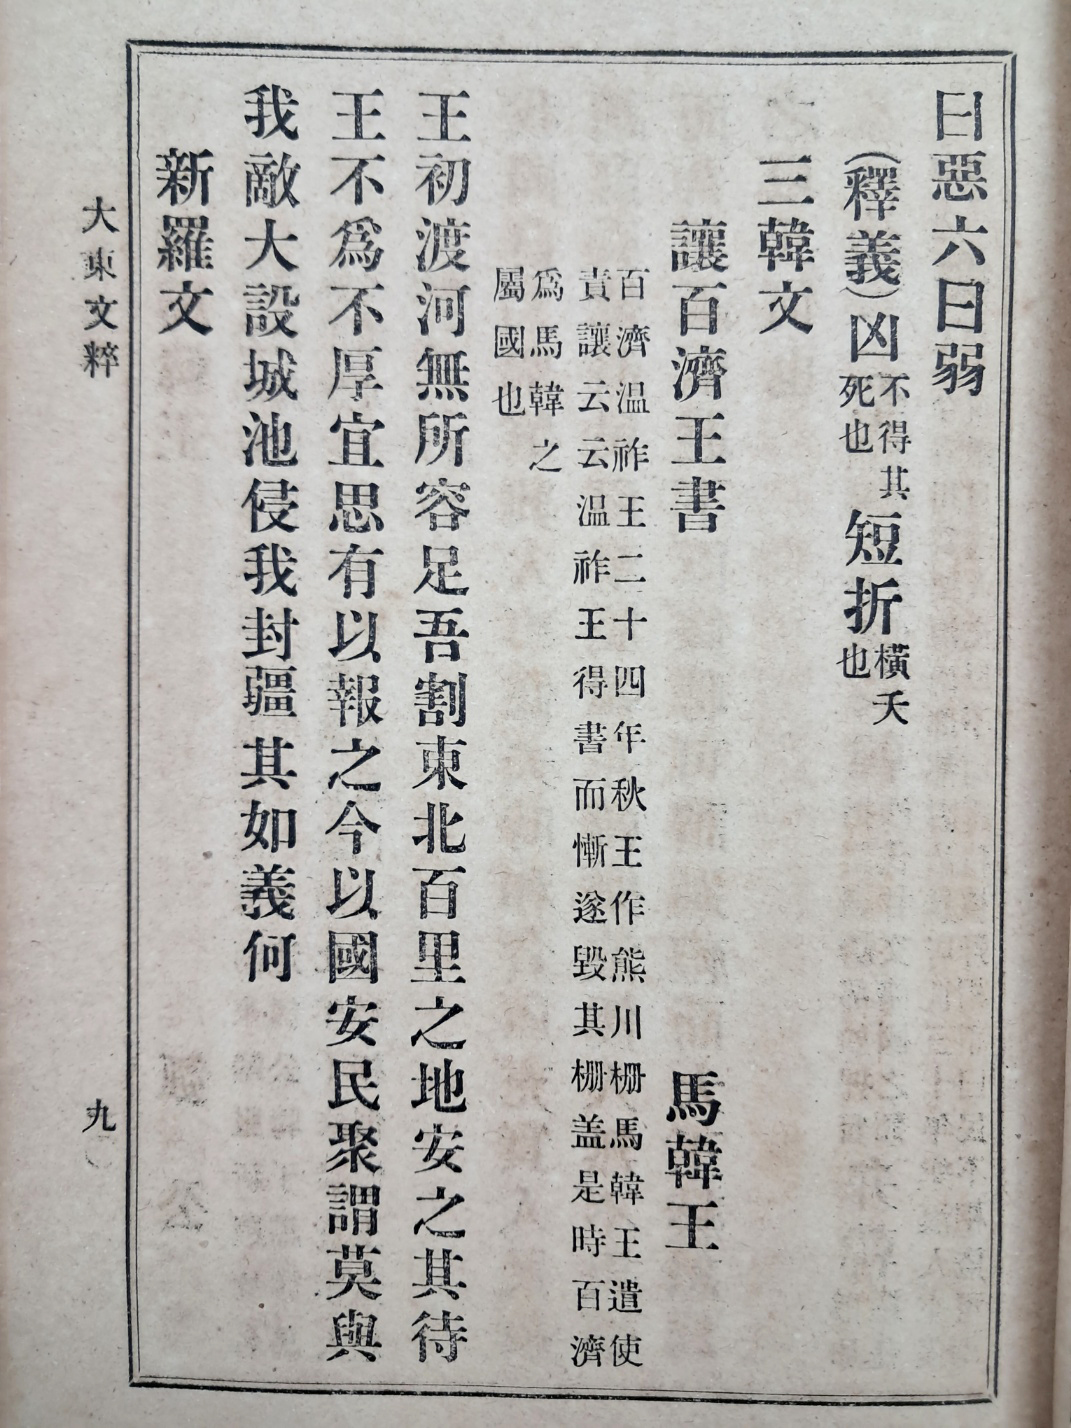 曰惡六曰弱
(釋義)凶不得其死也短折橫夭也
三韓文
讓百濟王書 馬韓王
百濟温祚王二十四年秋王作熊川栅馬韓王遣使
責讓云云温祚王得書而慚遂毀其栅盖是時百濟
爲馬韓之
屬國也
王初渡河無所容足吾割東北百里之地安之其待
王不爲不厚宜思有以報之今以國安民聚謂莫與
我敵大設城池侵我封疆其如義何
新羅文
大東文粹 九